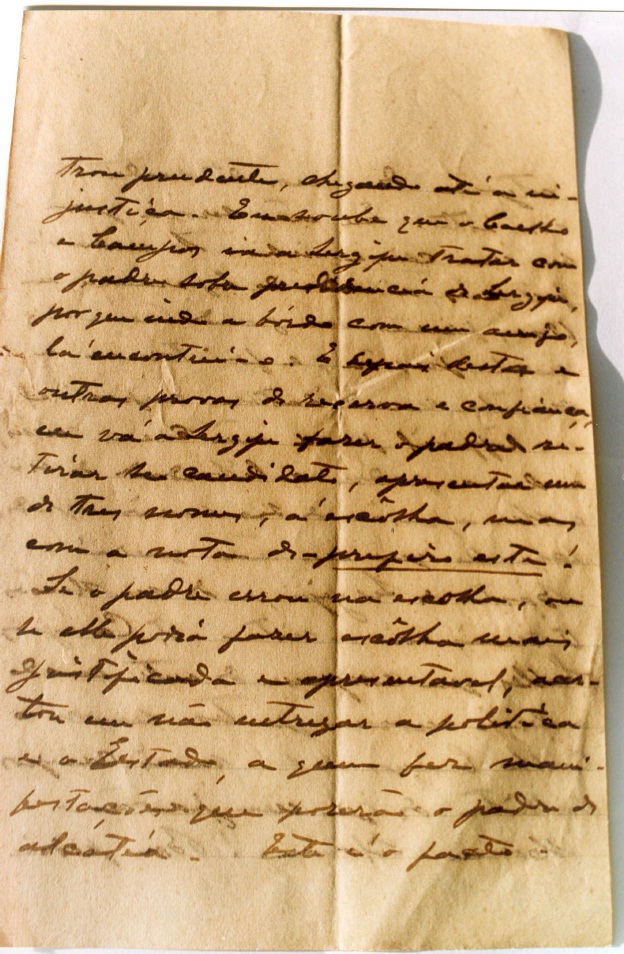 trou prudente, chegando até a in-
justiça. Eu soube que o Coelho
e Campos ia a Sergipe tratar com
o padre sobre presidencia de Sergipe,
por que indo a bórdo com um amigo,
lá encontrei-o. E depois destas e
outras provas de reserva e confiança,
eu vá a Sergipe fazer o padre re-
tirar seu candidato, apresentar um
de tres nomes, á escôlha, mas
com a nota de - prefiro este!
Se o padre errou na escolha, ou
se elle podia fazer escôlha mais
justificada e apresentavel, acer-
tou em não entregar a politica
e o Estado, a quem fez mani-
festações que pozerão o padre de
alcatéa. Este é o facto